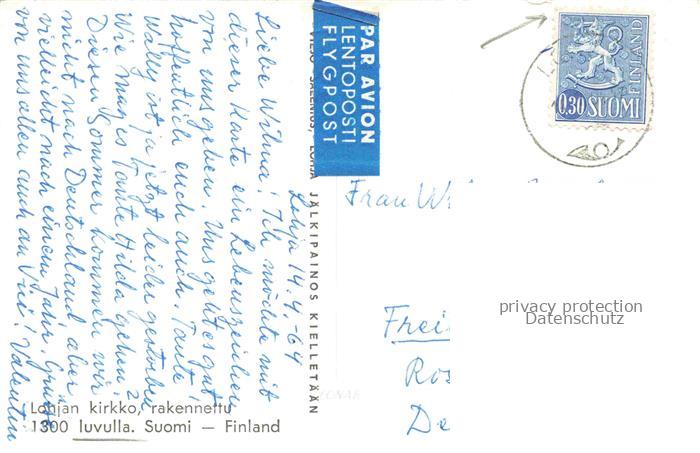 Lohja 14.4.-64
Liebe Wilma! Ich möchte mit
dieser Karte ein Lebenszeichen
von uns geben. Uns geht es gut
hoffentlich euch auch. Tante
Wally ist ja jetzt leider gestorben
Wie mag es Tante Hilda gehen?
Diesen Sommer kommen wir
nicht nach Deutschland aber
vielleicht nach einem Jahr. Grüsse
von uns allen auch an Uwi! Valentin
Lohjan kirkko, rakennettu
1300 luvulla. Suomi — Finland
SALENIUS, LOHJA JÄLKIPAINOS KIELLETÄÄN
PAR AVION
LENTOPOSTI
FLYGPOST
FINLAND
0,30 SUOMI
Frau W
Frei
Ros
De
privacy protection
Datenschutz